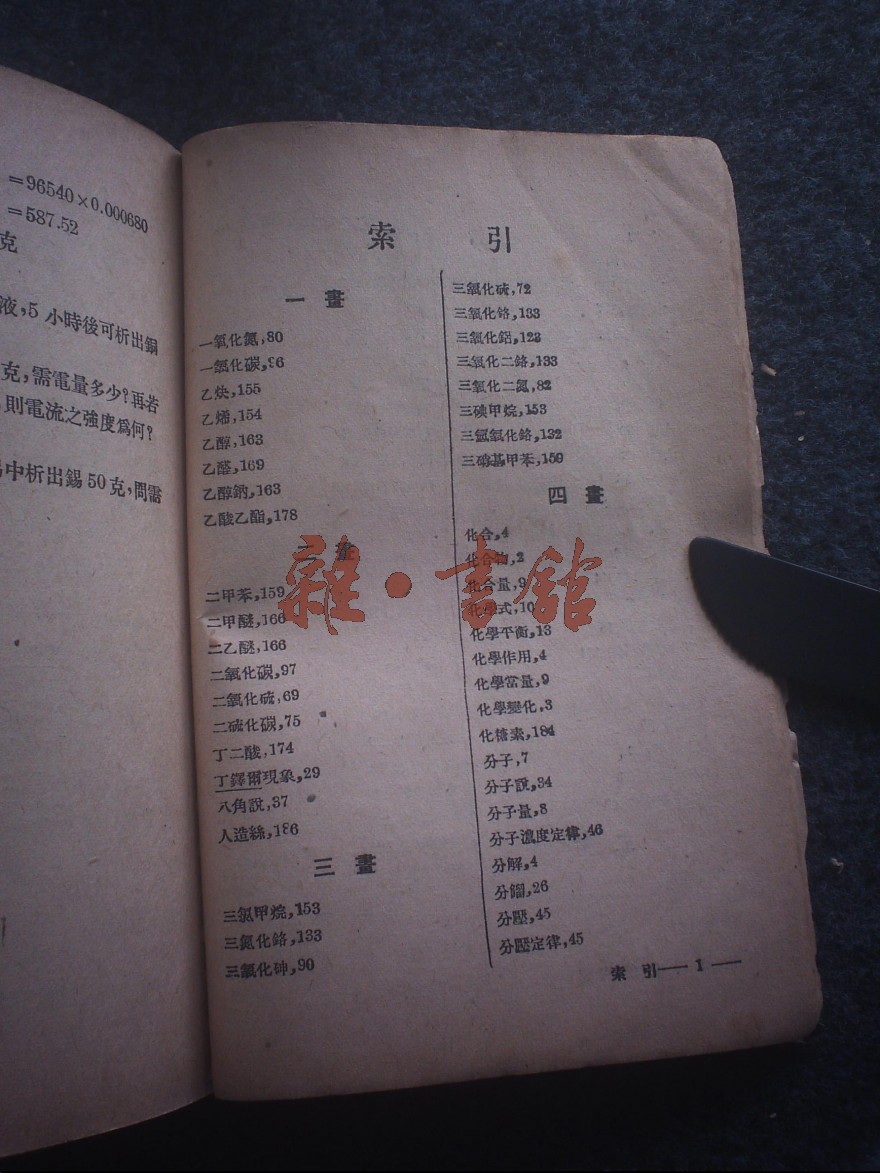 =96540×0.000680
=587.52
克
液,5 小時後可析出銅
克,需電量多少?再若
則電流之強度爲何?
中析出錫50克,問需
索 引
一 畫
一氧化氮,80
一氧化碳,96
乙炔,155
乙烯,154
乙醇,163
乙醛,169
乙醇鈉,163
乙酸乙酯,178
二 畫
二甲苯,159
二甲醚,166
二乙醚,166
二氧化碳,97
二氧化硫,69
二硫化碳,75
丁二酸,174
丁鐸爾現象,29
八角說,37
人造絲,186
三 畫
三氯甲烷,153
三氯化鉻,133
三氧化砷,90
三氧化硫,72
三氧化鉻,133
三氧化鋁,123
三氧化二鉻,133
三氧化二氮,82
三碘甲烷,153
三氫氧化鉻,132
三硝基甲苯,159
四 畫
化合,4
化合物,2
化合量,9
化學式,10
化學平衡,13
化學作用,4
化學當量,9
化學變化,3
化糖素,184
分子,7
分子說,34
分子量,8
分子濃度定律,46
分解,4
分餾,26
分壓,45
分壓定律,45
索 引— 1 —
雜·書館